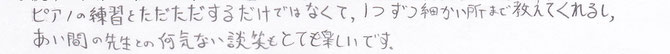 ピアノの練習をただただするだけではなくて、1つずつ細かい所まで教えてくれるし、
あい間の先生との何気ない談笑もとても楽しいです。